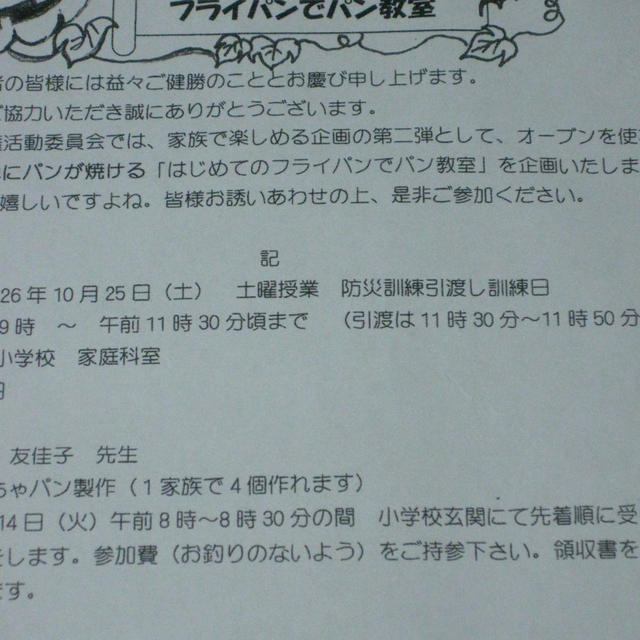 フライパンでパン教室
の皆様には益々ご健勝のこととお慶び申し上げます。
ご協力いただき誠にありがとうございます。
活動委員会では、家族で楽しめる企画の第二弾として、オーブンを使
にパンが焼ける「はじめてのフライパンでパン教室」を企画いたしま
嬉しいですよね。皆様お誘いあわせの上、是非ご参加ください。
記
26年10月25日（土） 土曜授業 防災訓練引渡し訓練日
9時 ～ 午前11時30分頃まで （引渡は11時30分～11時50分
小学校 家庭科室
円
友佳子 先生
ちゃパン製作（1家族で4個作れます）
14日（火）午前8時～8時30分の間 小学校玄関にて先着順に受
をします。参加費（お釣りのないよう）をご持参下さい。領収書を
ます。